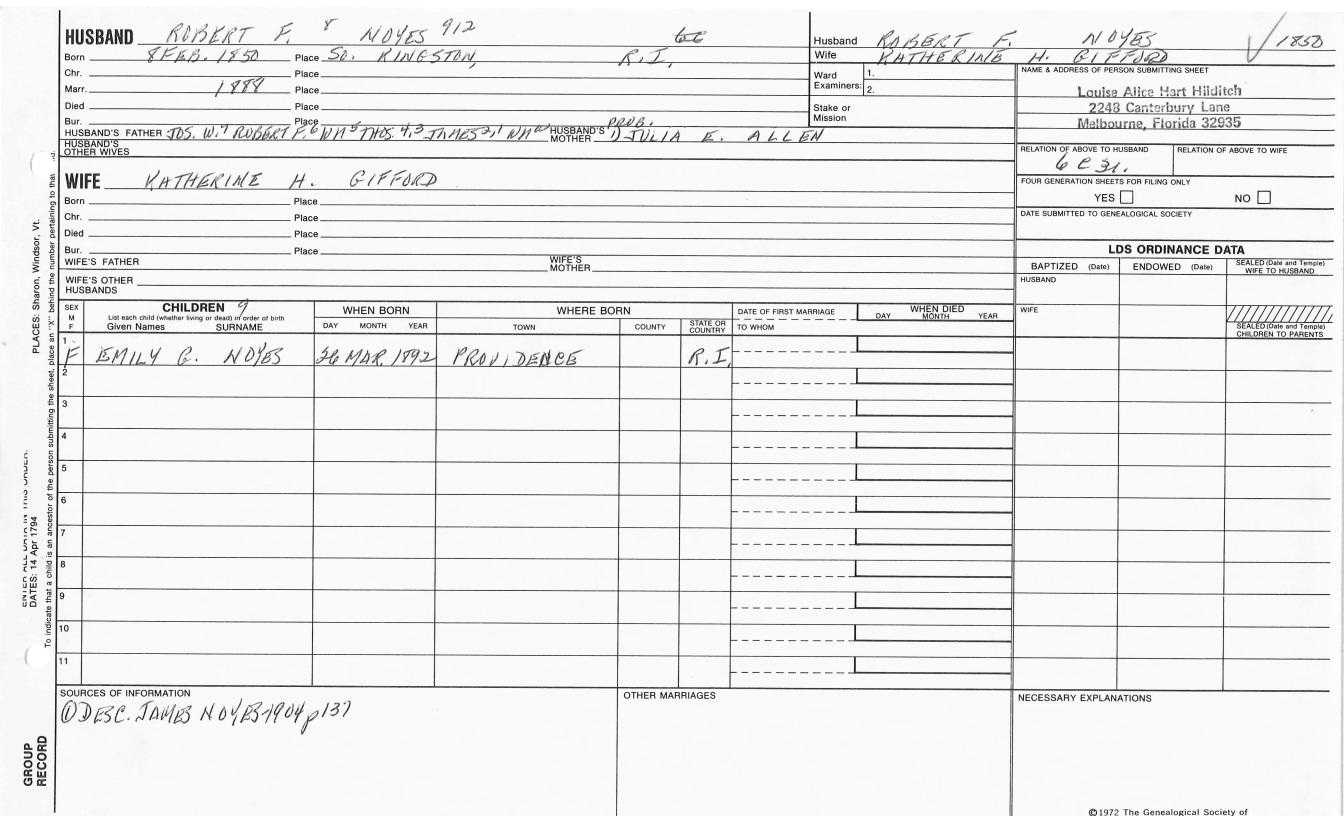 HUSBAND ROBERT F. 8 NOYES 912
Born 8 FEB. 1850 Place So. KINGSTON, R.I.
Chr. Place
Marr. 1888 Place
Died Place
Bur. Place
HUSBAND'S FATHER JOS. W.7 ROBERT F.6 WM5 THOS 4,3 JAMES 2,1 WM HUSBAND'S MOTHER PROB. JULIA E. ALLEN
HUSBAND'S OTHER WIVES
Husband ROBERT F. NOYES 1850
Wife KATHERINE H. GIFFORD
Ward Examiners: 1.
2.
Stake or Mission
NAME & ADDRESS OF PERSON SUBMITTING SHEET
Louise Alice Hart Hilditch
2248 Canterbury Lane
Melbourne, Florida 32935
RELATION OF ABOVE TO HUSBAND RELATION OF ABOVE TO WIFE
6 C 3r.
FOUR GENERATION SHEETS FOR FILING ONLY
YES NO
DATE SUBMITTED TO GENEALOGICAL SOCIETY
WIFE KATHERINE H. GIFFORD
Born Place
Chr. Place
Died Place
Bur. Place
WIFE'S FATHER WIFE'S MOTHER
WIFE'S OTHER HUSBANDS
LDS ORDINANCE DATA
BAPTIZED (Date) ENDOWED (Date) SEALED (Date and Temple) WIFE TO HUSBAND
HUSBAND
WIFE
SEALED (Date and Temple) CHILDREN TO PARENTS
SEX M F
CHILDREN 9
List each child (whether living or dead) in order of birth
Given Names SURNAME
WHEN BORN
DAY MONTH YEAR
WHERE BORN
TOWN COUNTY STATE OR COUNTRY
DATE OF FIRST MARRIAGE
TO WHOM
WHEN DIED
DAY MONTH YEAR
1 F EMILY G. NOYES 26 MAR. 1892 PROVIDENCE R.I.
2
3
4
5
6
7
8
9
10
11
SOURCES OF INFORMATION
① DESC. JAMES NOYES-1904 p 137
OTHER MARRIAGES
NECESSARY EXPLANATIONS
©1972 The Genealogical Society of
PLACES: Sharon, Windsor, Vt.
ENTER ALL DATA IN THIS ORDER:
DATES: 14 Apr 1794
To indicate that a child is an ancestor of the person submitting the sheet, place an "X" behind the number pertaining to that
GROUP RECORD